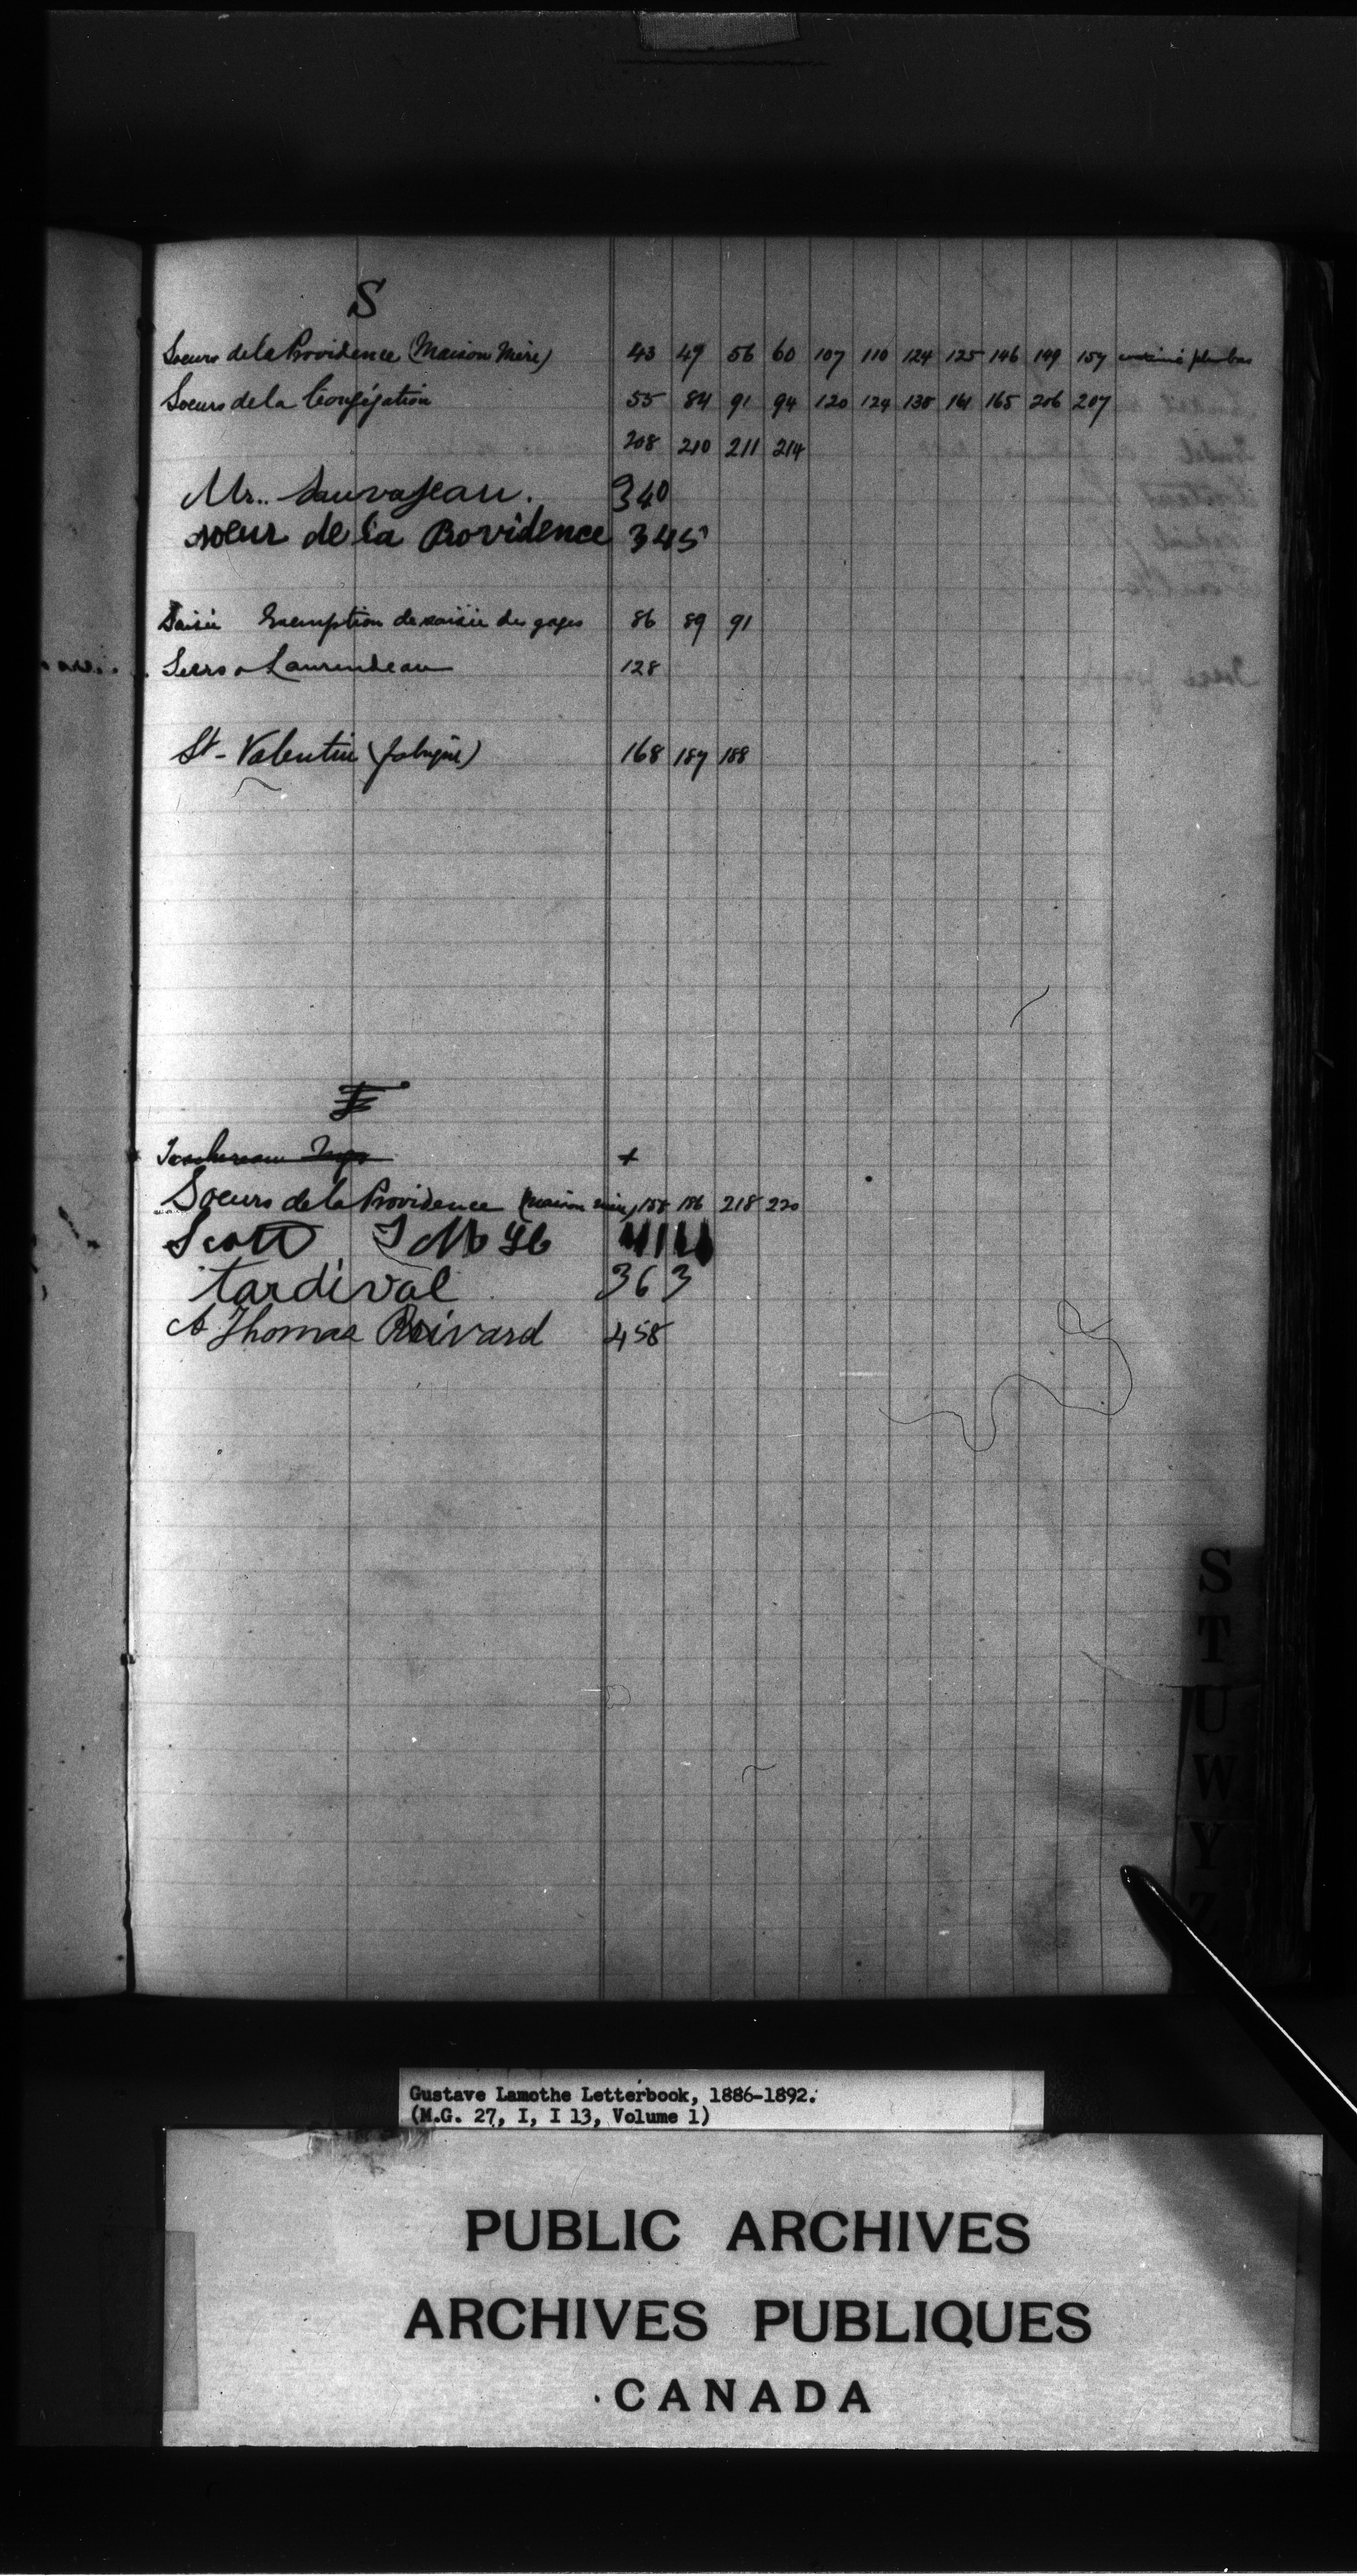 S
Soeurs de la Providence (Maison Mère) 43 49 56 60 107 110 124 125 146 149 157 continué plus bas
Soeurs de la Congégation 55 84 91 94 120 124 138 161 165 206 207
208 210 211 214
Mr.. Sauvageau. 340
soeur de la Providence 345
Saisie Exemption de saisie des gages 86 89 91
Serres Laurendeau 128
St-Valentin (fabrique) 168 187 188
T
Taschereau
Soeurs de la Providence (maison mère) 158 186 218 220
Scott
tardival 363
A Thomas Rivard 458
S
T
U
W
Y
Z
Gustave Lamothe Letterbook, 1886-1892.
(M.G. 27, I, I 13, Volume 1)
PUBLIC ARCHIVES
ARCHIVES PUBLIQUES
CANADA